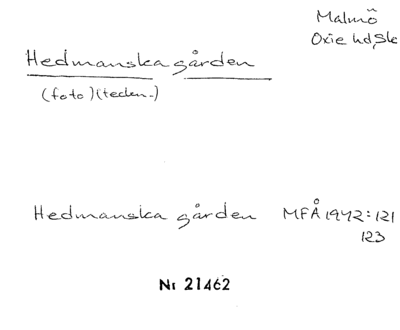 Malmö
Oxie hd, Sk
Hedmanska gården
(foto) (teckn.)
Hedmanska gården MFÅ 1942: 121
123
Nr 21462